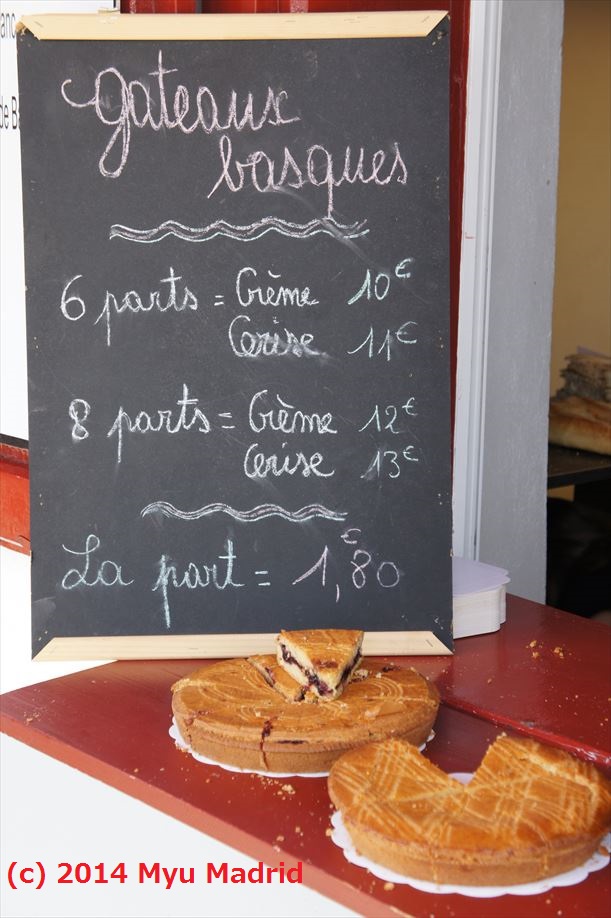 gâteaux
basques
6 parts = Crème 10€
Cerise 11€
8 parts = Crème 12€
Cerise 13€
La part = 1,€80
(c) 2014 Myu Madrid